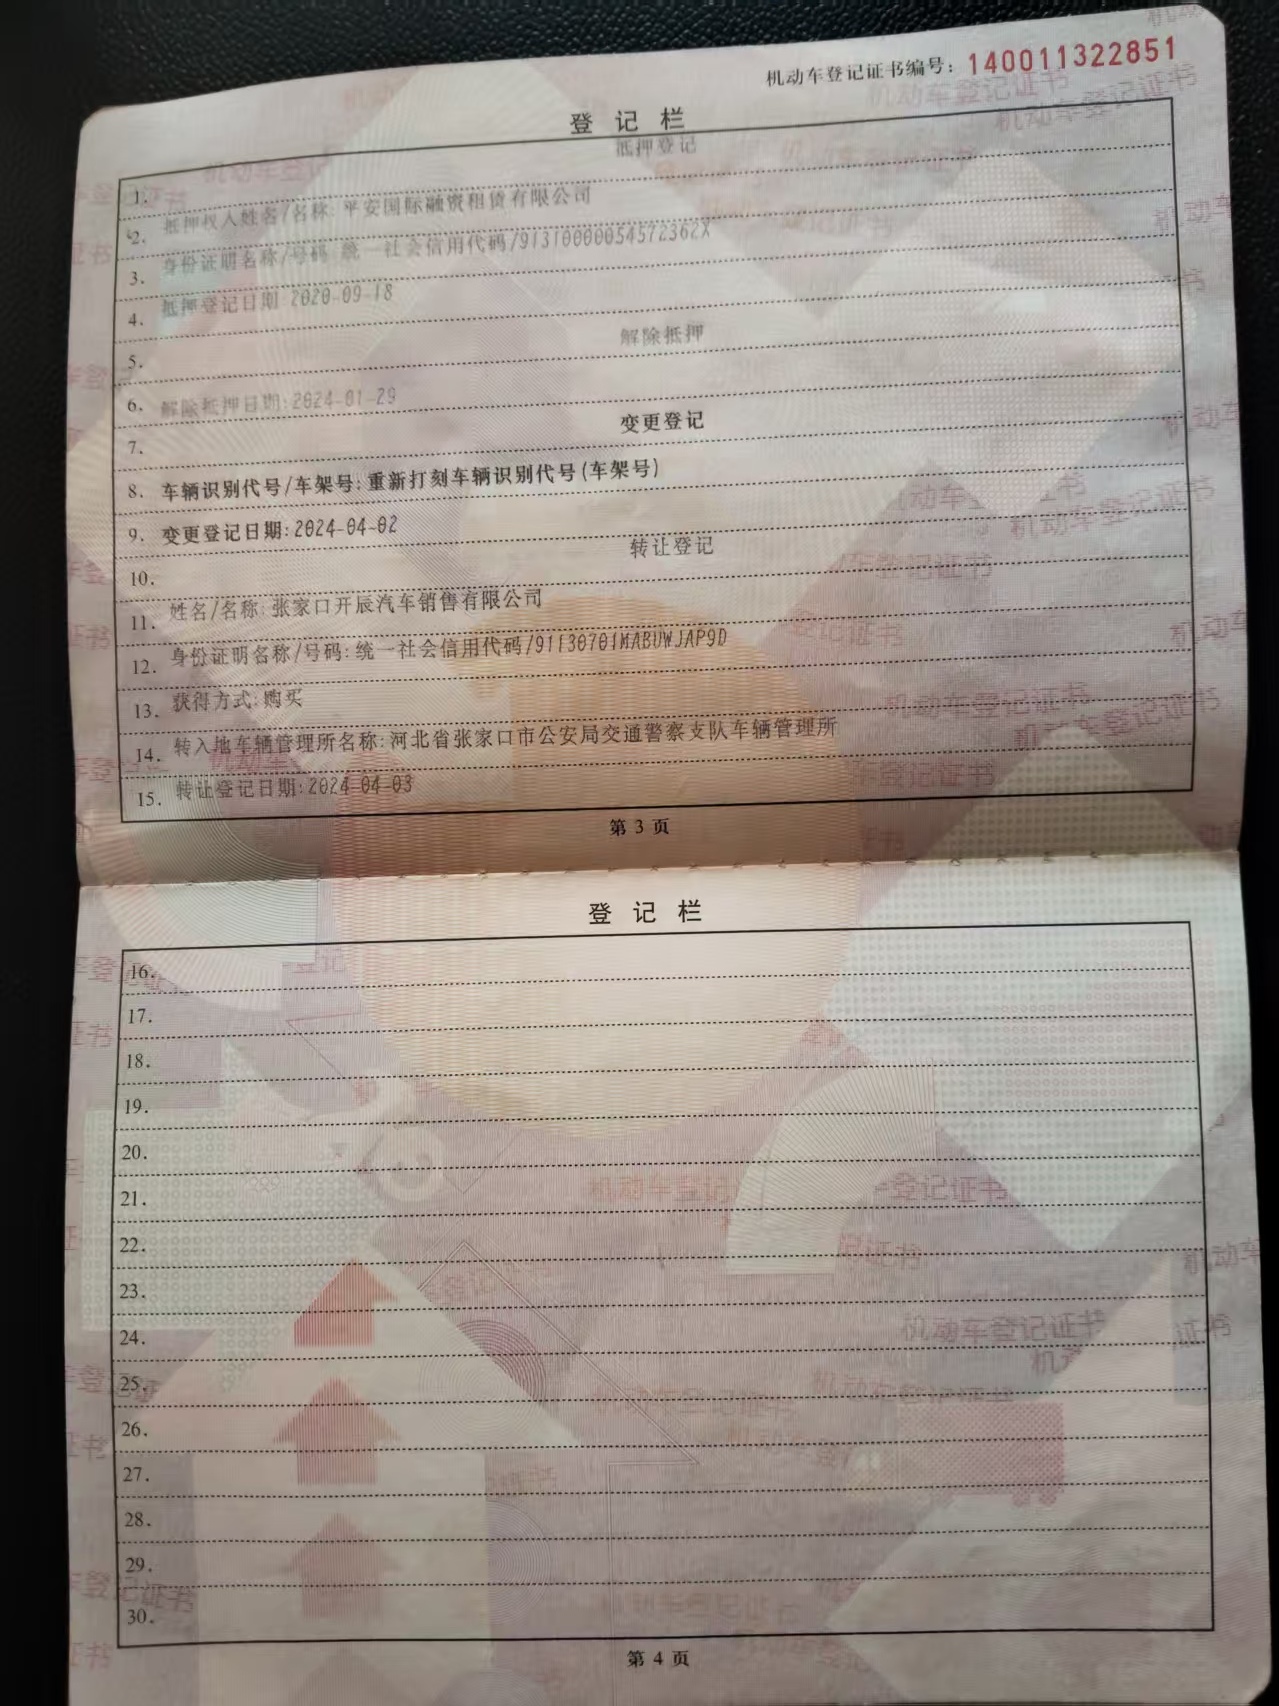 机动车登记证书编号：140011322851
登记栏
抵押登记
1.
抵押权人姓名/名称:平安国际融资租赁有限公司
2.
身份证明名称/号码:统一社会信用代码/91310000054572362X
3.
抵押登记日期:2020-09-18
4.
解除抵押
5.
6. 解除抵押日期:2024-01-29
变更登记
7.
8. 车辆识别代号/车架号:重新打刻车辆识别代号(车架号)
9. 变更登记日期:2024-04-02
转让登记
10.
11. 姓名/名称:张家口开辰汽车销售有限公司
12. 身份证明名称/号码:统一社会信用代码/91130701MABUWJAP9D
13. 获得方式:购买
14. 转入地车辆管理所名称:河北省张家口市公安局交通警察支队车辆管理所
15. 转让登记日期:2024-04-03
第 3 页
登记栏
16.
17.
18.
19.
20.
21.
22.
23.
24.
25.
26.
27.
28.
29.
30.
第 4 页